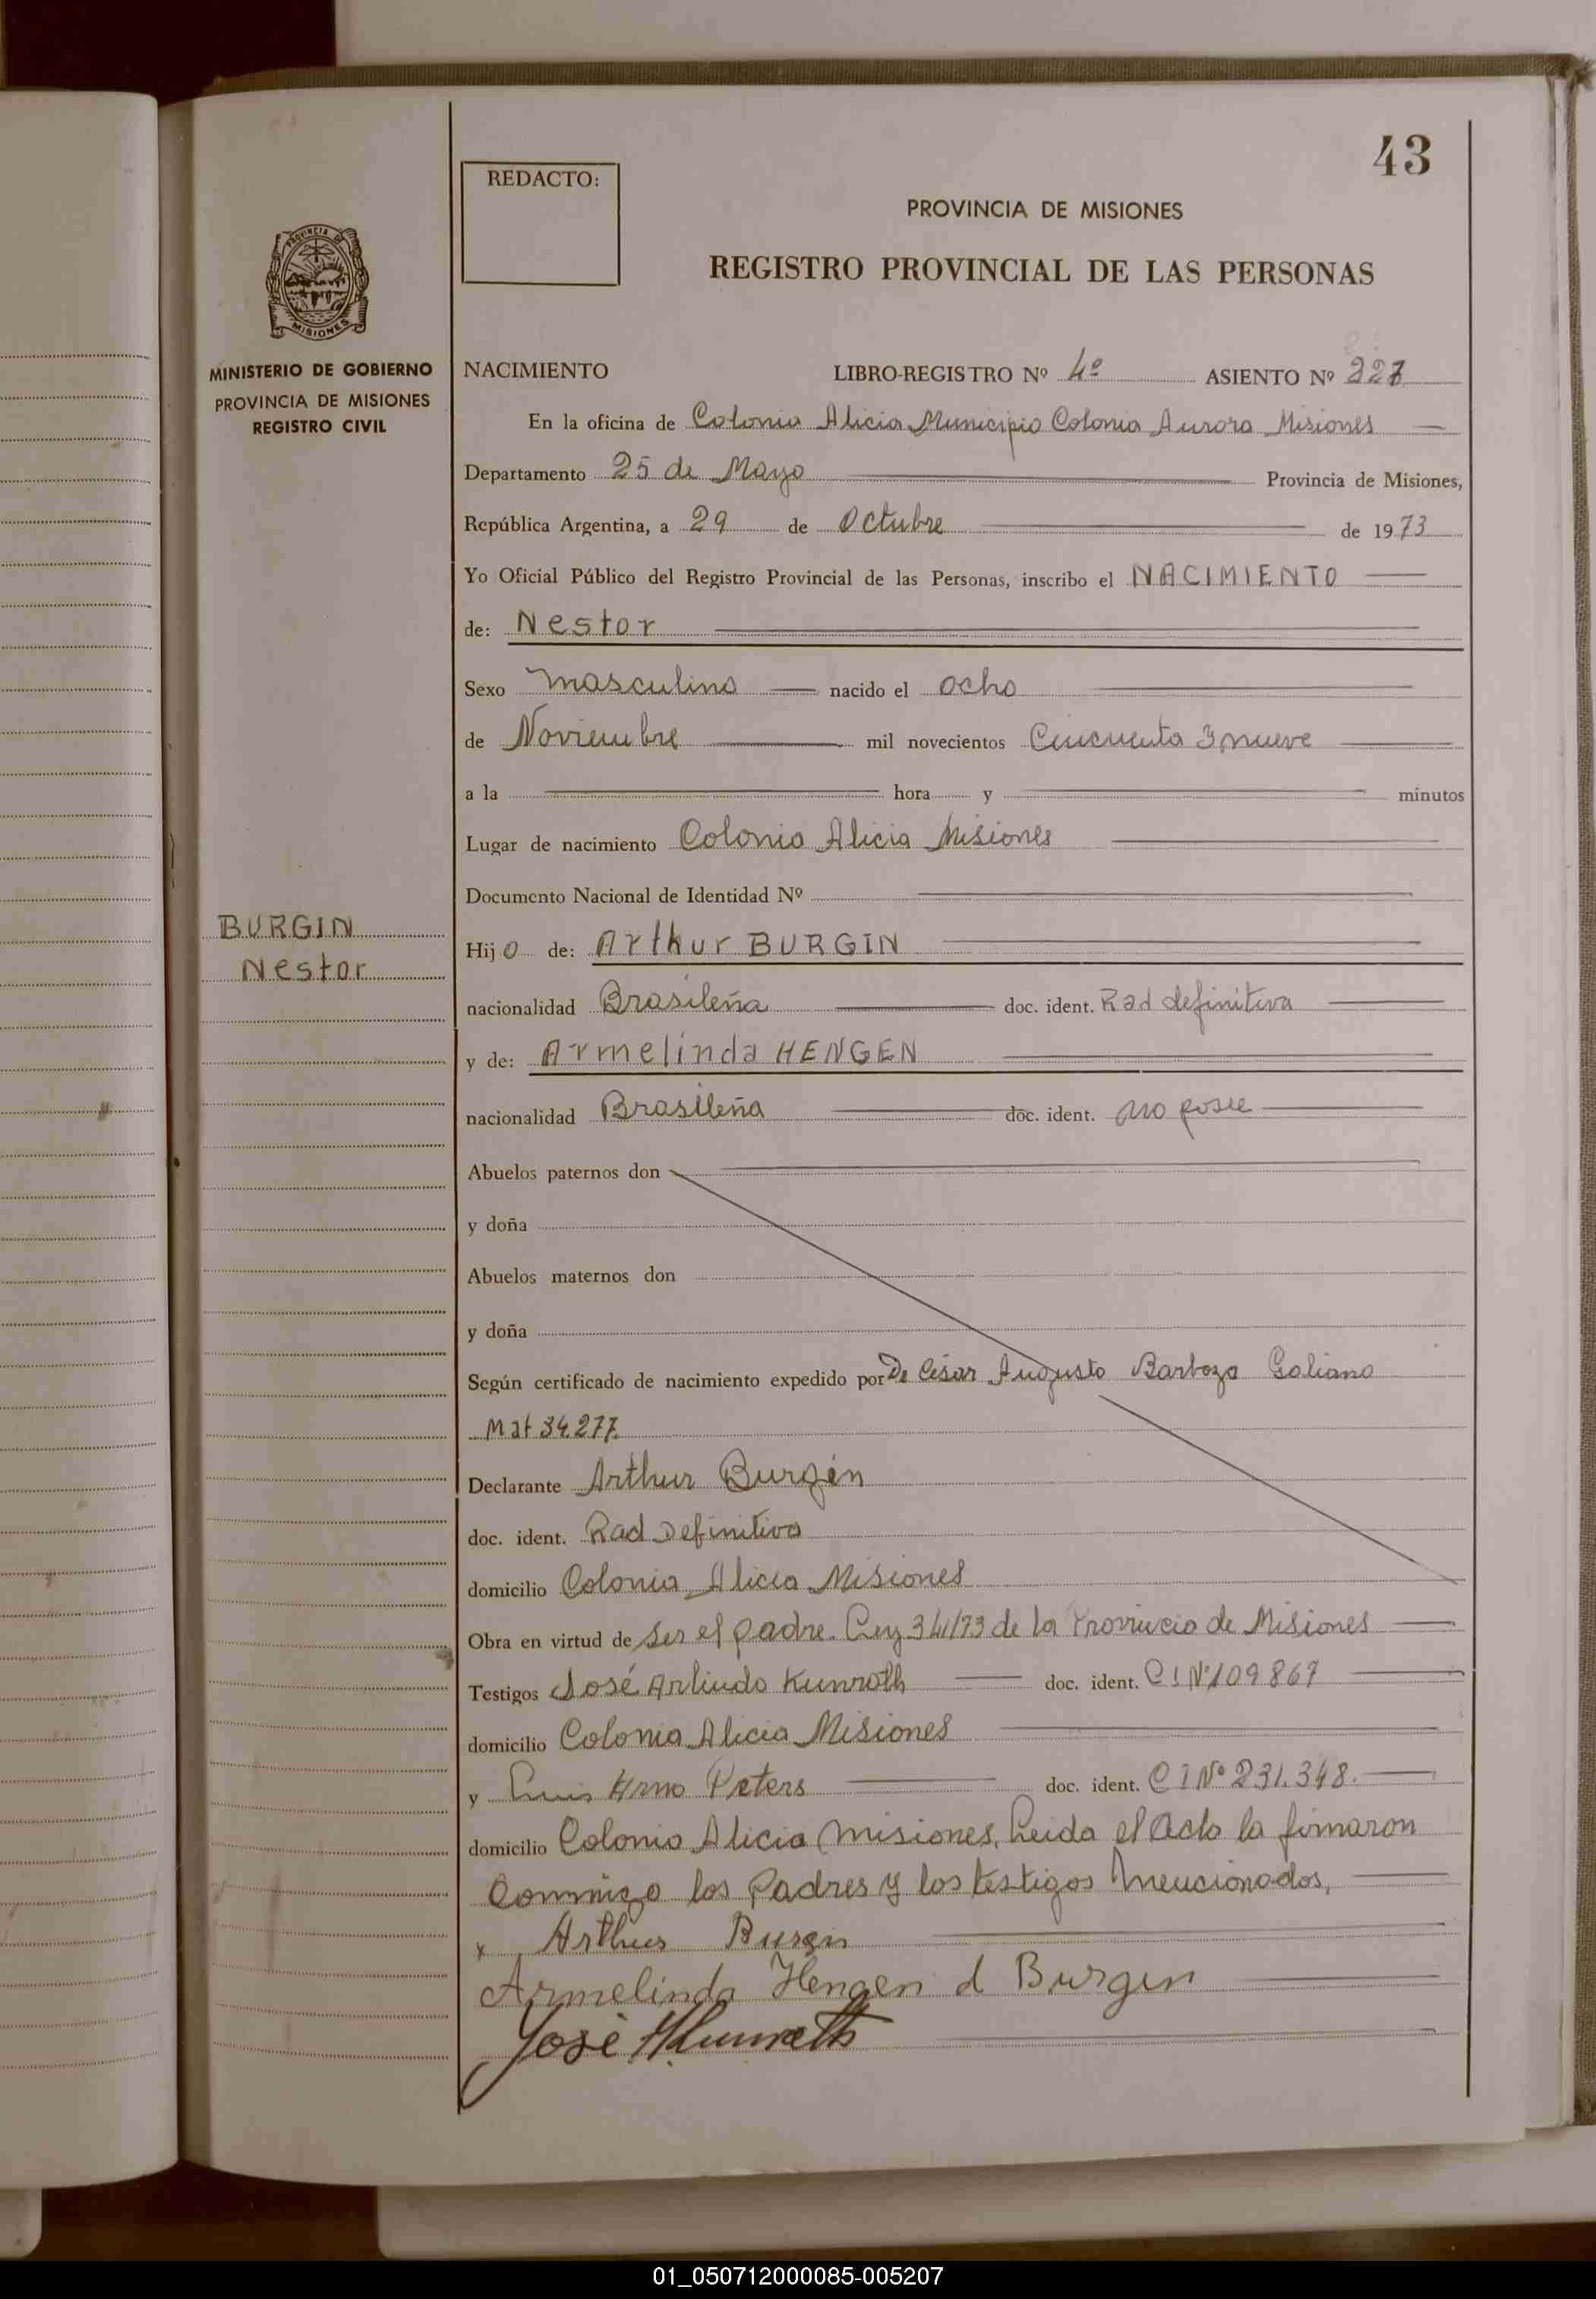 43
REDACTO:
PROVINCIA DE MISIONES
REGISTRO PROVINCIAL DE LAS PERSONAS
PROVINCIA DE
MISIONES
MINISTERIO DE GOBIERNO
PROVINCIA DE MISIONES
REGISTRO CIVIL
NACIMIENTO LIBRO-REGISTRO Nº 4º ASIENTO Nº
En la oficina de Colonia Alicia Municipio Colonia Aurora Misiones
Departamento 25 de Mayo Provincia de Misiones,
República Argentina, a 29 de Octubre de 1973
Yo Oficial Público del Registro Provincial de las Personas, inscribo el NACIMIENTO
de: Nestor
Sexo masculino nacido el ocho
de Noviembre mil novecientos Cincuenta y nueve
a la hora y minutos
Lugar de nacimiento Colonia Alicia Misiones
Documento Nacional de Identidad Nº
BURGIN
Nestor
Hijo de: Arthur BURGIN
nacionalidad Brasileña doc. ident. Rad definitiva
y de: Armelinda HENGEN
nacionalidad Brasileña doc. ident. no posee
Abuelos paternos don
y doña
Abuelos maternos don
y doña
Según certificado de nacimiento expedido por Dr César Augusto Barboza Galiano
Mat 34.277.
Declarante Arthur Burgin
doc. ident. Rad Definitiva
domicilio Colonia Alicia Misiones
Obra en virtud de ser el padre. Ley 341/73 de la Provincia de Misiones
Testigos José Arlindo Kunrath doc. ident. C I Nº 109867
domicilio Colonia Alicia Misiones
y Luis Arno Peters doc. ident. C I Nº 231.348.
domicilio Colonia Alicia Misiones, Leida el Acta la firmaron
Conmigo los Padres y los testigos Mencionados,
x Arthur Burgin
Armelinda Hengen d Burgin
José A Kunrath
01_050712000085-005207